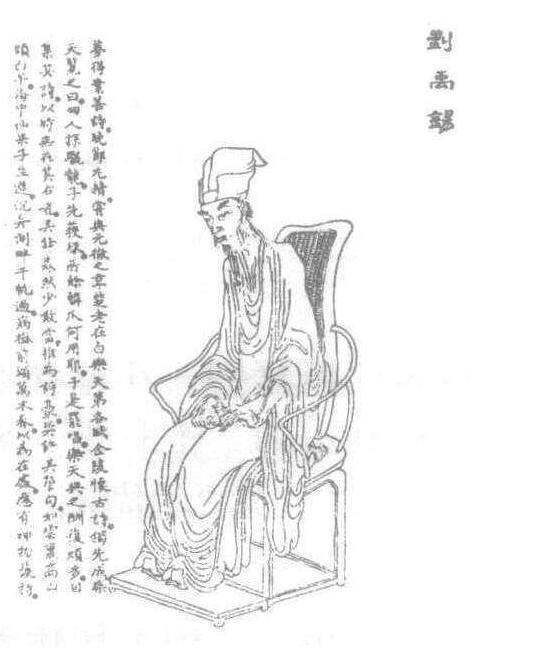 劉禹錫
夢得業善詩晚節尤精嘗與元微之韋楚老在白樂天第各賦金陵懷古詩獨先成樂
天覽之曰四人探驪龍子先獲珠所餘鱗爪何用耶于是罷唱樂天與之酬復頗多自
集其詩以無在其右其鋒森然少敢當推為詩豪其句如雪裏高山
頭白早海中仙果子生遲沉舟側畔千帆過病樹前頭萬木春以為在處應有神物護持